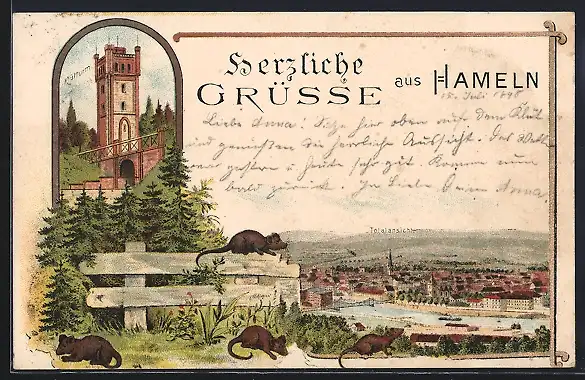 Klütturm
Herzliche
GRÜSSE aus HAMELN
15. Juli 1898
Liebe Anna! Sitze hier oben auf dem Klüt
und genießen die herrliche Aussicht. Das Wetter
gestern u heute sehr gut. Komme nun
bald zurück. In Liebe Anna.
Totalansicht